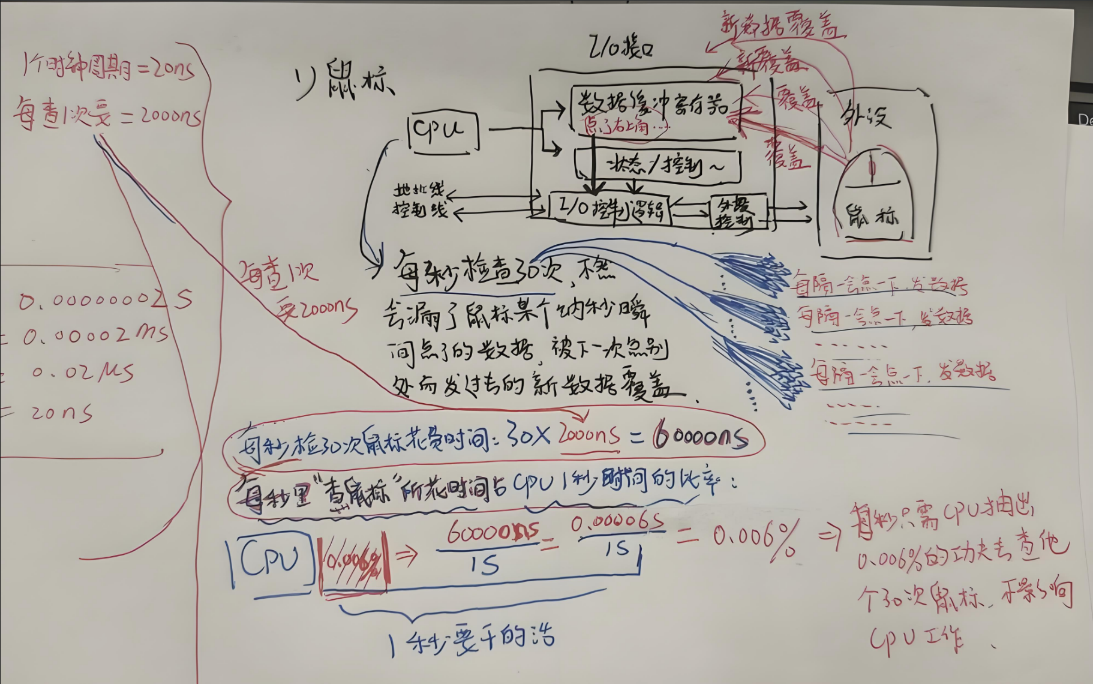 1个时钟周期=20ns
每查1次要=2000ns
0.00000002S
= 0.00002ms
= 0.02μs
= 20ns
1)鼠标
I/O接口
新数据覆盖
新覆盖
覆盖
覆盖
CPU
数据缓冲寄存器
点了右上角…
状态/控制~
地址线
控制线
I/O控制逻辑
外设
控制
外设
鼠标
每查1次
要2000ns
每秒检查30次,不然
会漏了鼠标某个纳秒瞬
间点了的数据,被下一次点别
处而发过去的新数据覆盖.
每隔一会点一下,发数据
每隔一会点一下,发数据
......
每隔一会点一下,发数据
每秒检30次鼠标花费时间:30×2000ns=60000ns
每秒里"查鼠标"所花时间占CPU1秒时间的比率:
CPU 0.006% ⇒ 60000ns/1S = 0.00006s/1S = 0.006% ⇒
每秒只需CPU抽出
0.006%的功夫去查他
个30次鼠标、不影响
CPU工作、
1秒要干的活